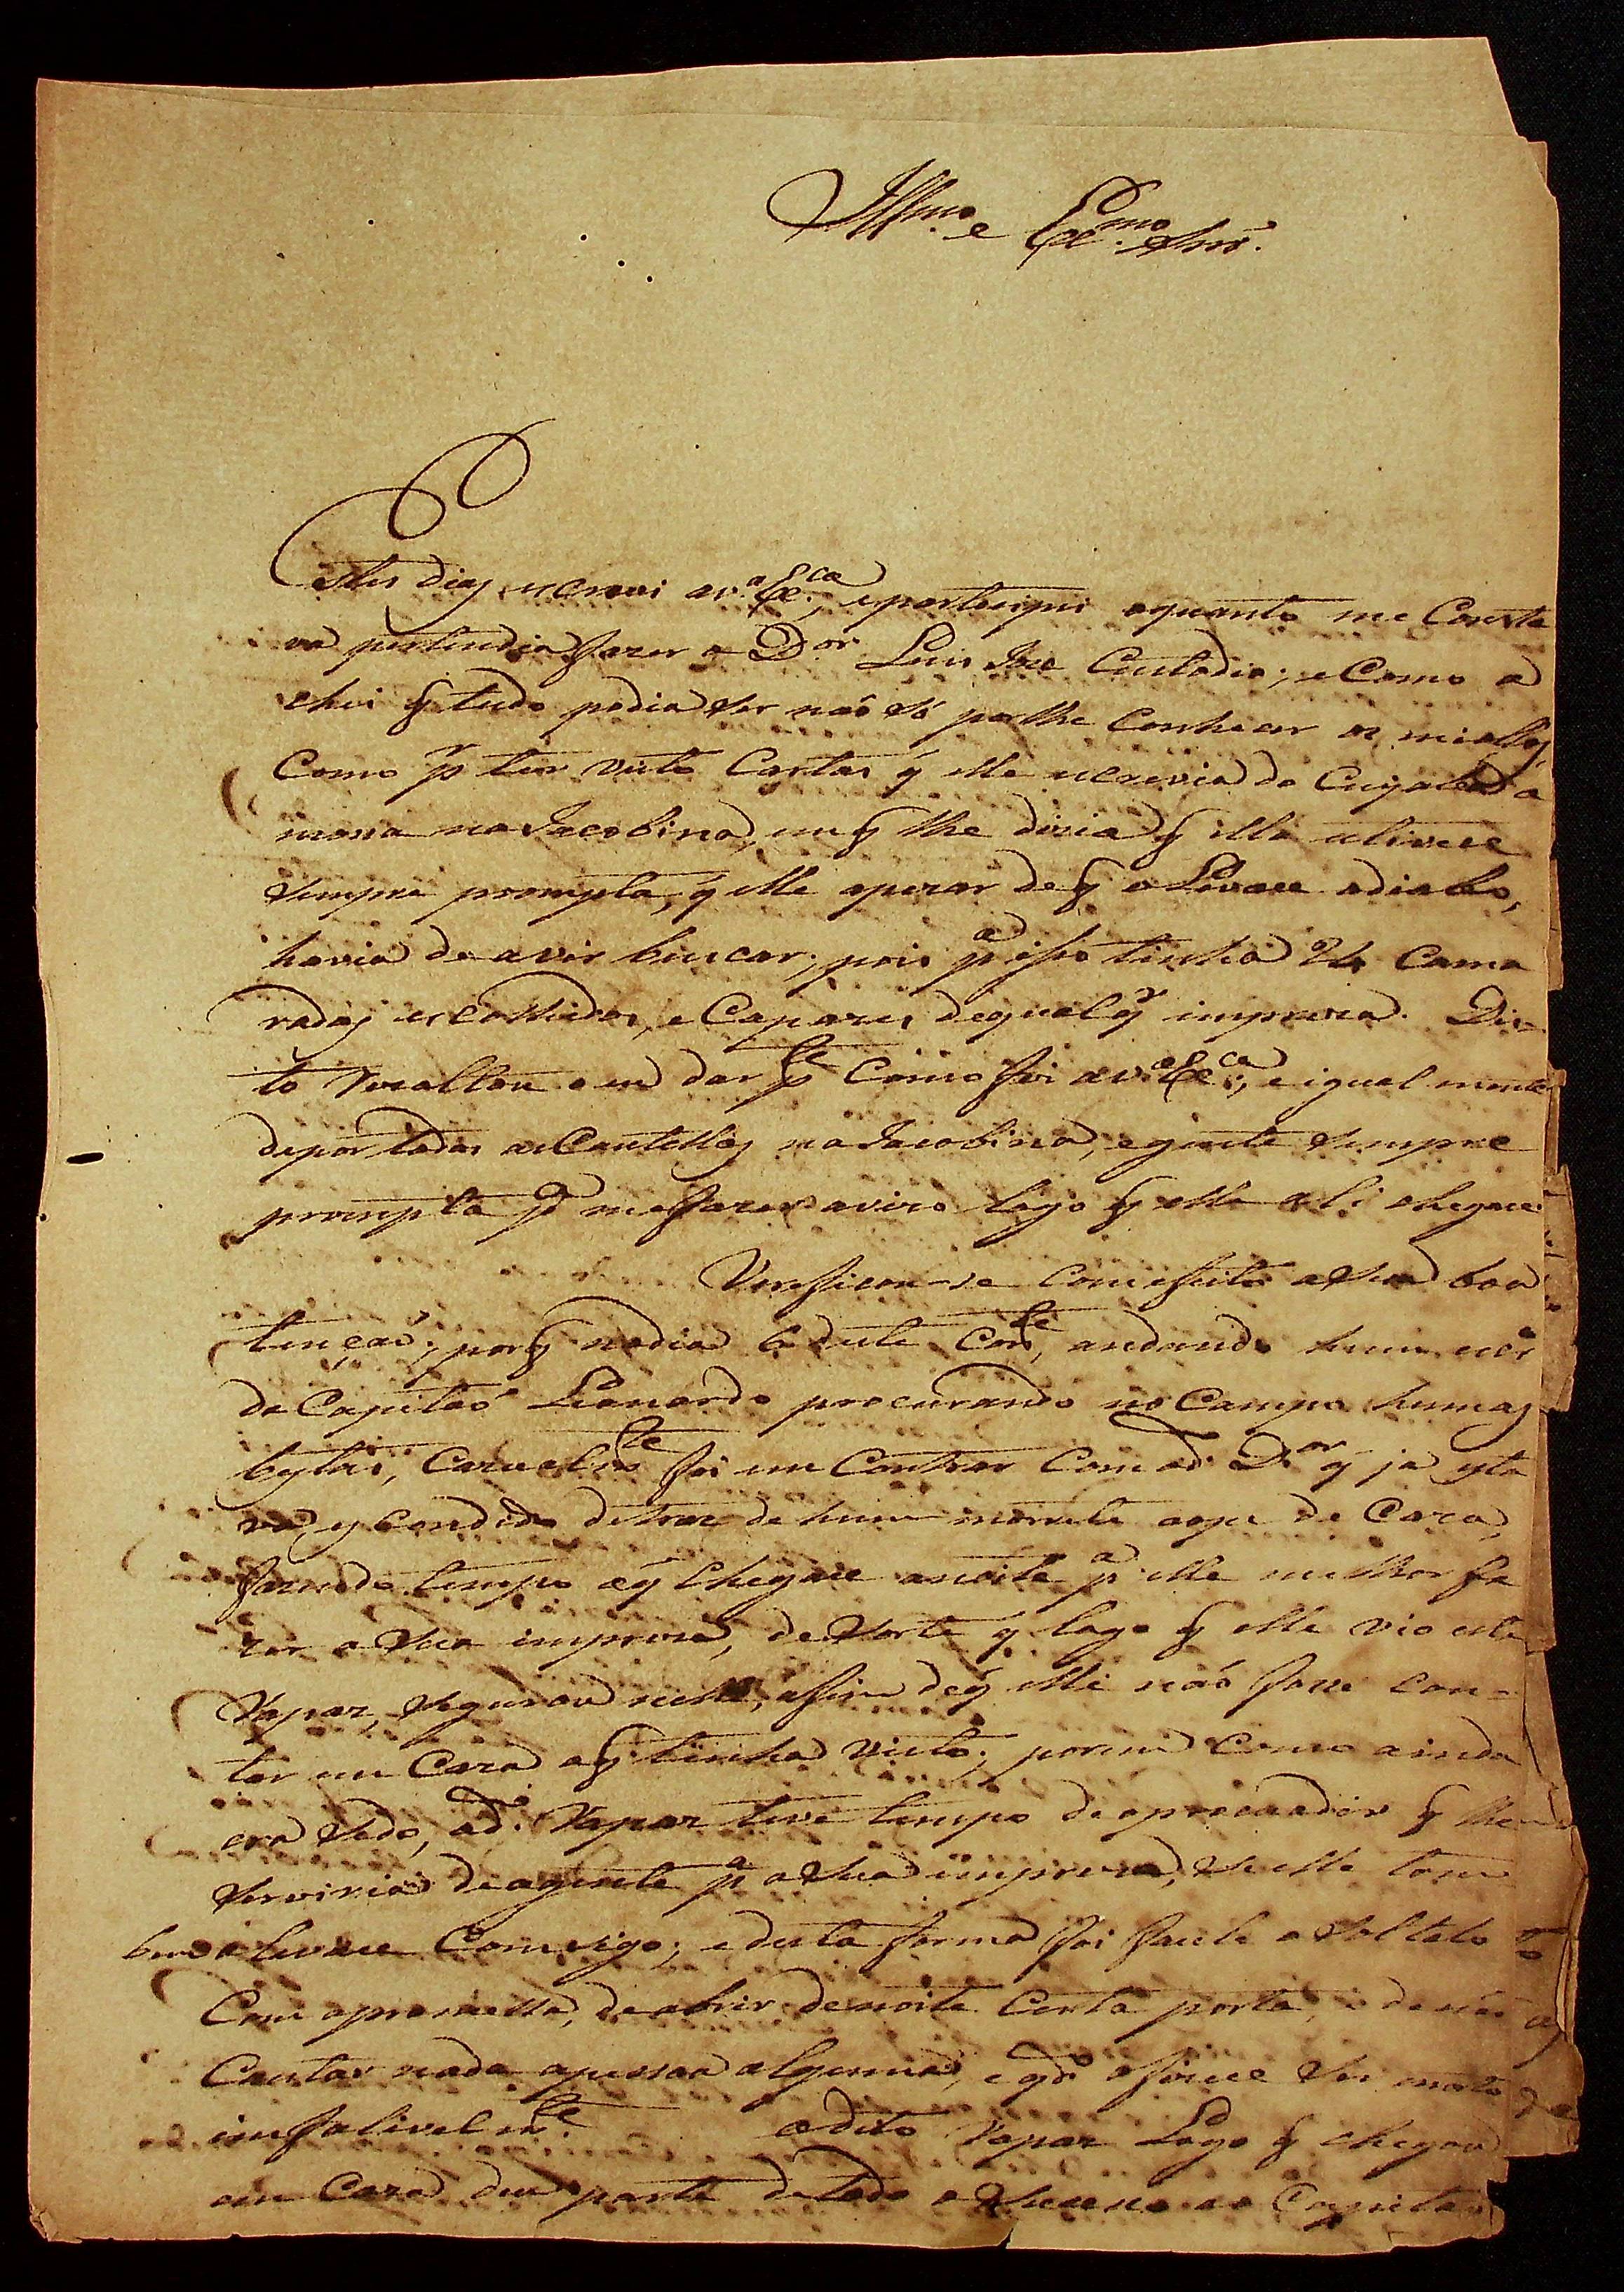 Illmo. e Exmo. Snr.
Estes dias escrevi a V.a Ex.ca, e participei oquanto me Consta
va pertendia fazer o D.or Luis Joze Custodio; e Como a
chei q tudo podia ser não só por lhe Conhecer os miollos,
Como pr ter visto Cartas q elle escrevia de Cuyaba a
mossa na Jacobina, em q lhe dizia q ella estivece
sempre prompta, q elle apezar de q o Levace odiabo,
havia de avir buscar; pois pa isso tinha 24 Cama
radas escolhidos, e Capazes de qualqr impreza. Dis-
to rezultou o eu dar pte Como foi a V.a Ex.ca, e igual mente
depor todas as Cautellas na Jacobina, e gente sempre
prompta pa me fazer avizo logo q elle ali chegace.
Verificou-se Com efeito a sua boa
tenção; porq nodia 6 deste Corre, andando hum
do Capitaõ Leonardo procurando no Campo humas
bestas, Cazualmte foi em Contrar Com o d.o D.or q ja esta
va escondido detraz de hum morrete ao pe de Caza,
fazendo tempo a q Chegace anoite pa elle melhor fa
zer a sua impreza, de sorte q logo q elle vio este
rapaz, segurou nelle, afim de q elle não fosse con-
tar em Caza o q tinha visto; porem Como ainda
era sedo, o d.o rapaz teve tempo de opresuadir q lhe
serviria de agente pa a sua impreza, se elle tam
bem o levace Comsigo; e desta forma foi facil o soltalo
Com apromessa, de abrir denoite Certa porta, e de não
Contar nada apessoa alguma, e qdo ofizece ser morto
imfalivelmte. o dito rapaz Logo q chegou
em Caza deu parte de todo o suceso ao Capitaõ